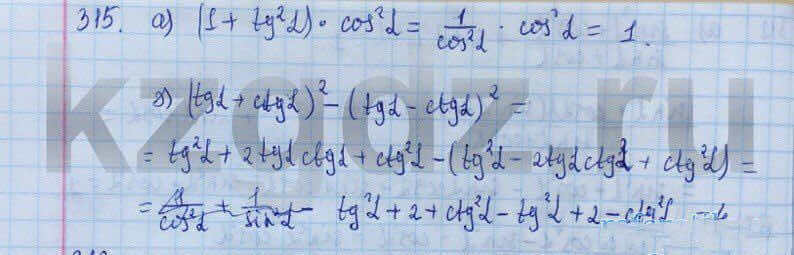 315. а) (1 + tg²α) · cos²α = 1/cos²α · cos²α = 1.
г) (tgα + ctgα)² − (tgα − ctgα)² =
= tg²α + 2tgα ctgα + ctg²α − (tg²α − 2tgα ctgα + ctg²α) =
= tg²α + 2 + ctg²α − tg²α + 2 − ctg²α
kzgdz.ru